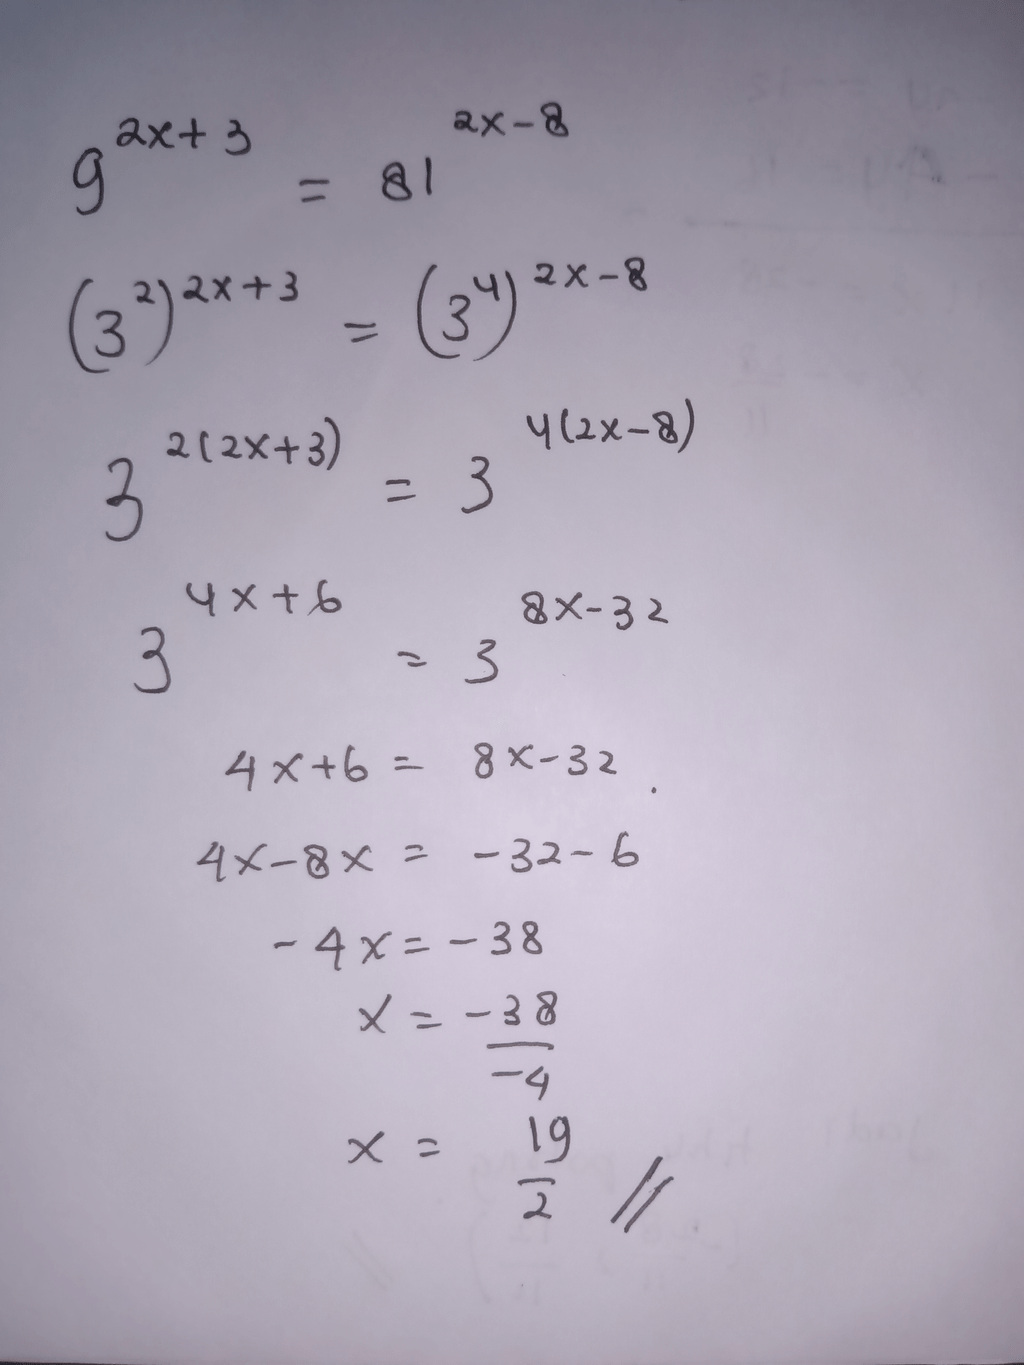 9^(2x+3) = 81^(2x-8)
(3^2)^(2x+3) = (3^4)^(2x-8)
3^(2(2x+3)) = 3^(4(2x-8))
3^(4x+6) = 3^(8x-32)
4x+6 = 8x-32.
4x-8x = -32-6
-4x = -38
x = -38/-4
x = 19/2 //